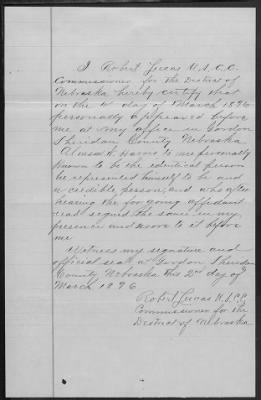 I Robert Lucas U.S.C.C.
Commissioner for the District of
Nebraska hereby certify that
on the 2 day of March 1896
personally appeared before
me at my office in Gordon
Sheridan County Nebraska
A. to me personally
known to be the identical person
he represented himself to be and
a credible person, and who after
hearing the for going affidavit
read signed the same in my
presence and swore to it before
me
Witness my signature and
official seal a Gordon Sheridan
County Nebraska this 2nd day of
March 1896
Robert Lucas U.S.C.C.
Commissioner for the
District of Nebraska